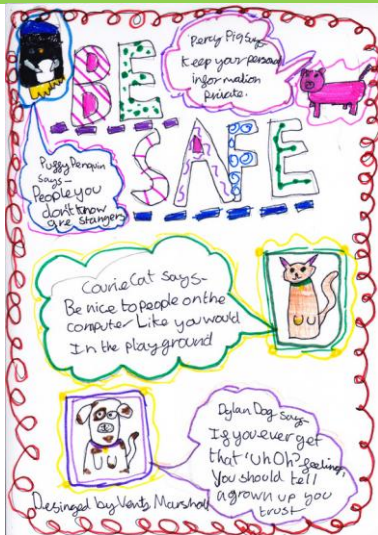 BE
SAFE
Percy Pig says
Keep your personal
information
private.
Puffy Penguin
says -
People you
don't know
are stangers
Courie Cat says -
Be nice to people on the
computer Like you would
In the playground
Dylan Dog says -
If you ever get
that "Uh Oh" feeling,
You should tell
a grown up you
trust
Desinged by Marshall